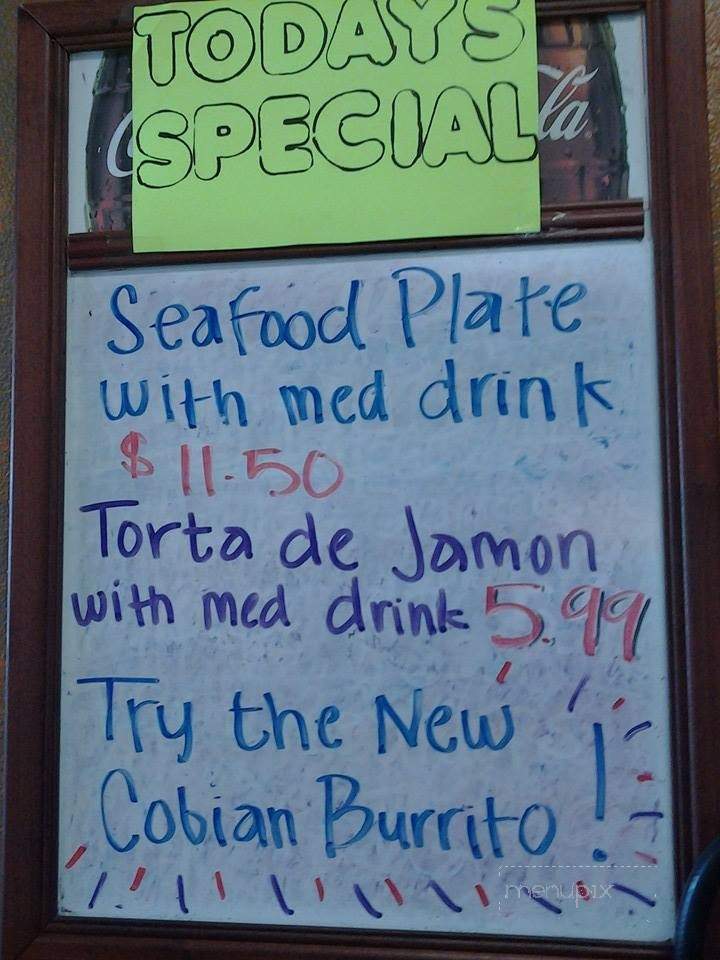 TODAYS
SPECIAL
la
Seafood Plate
with med drink
$ 11.50
Torta de Jamon
with med drink 5.99
Try the New
Cobian Burrito!
menupix